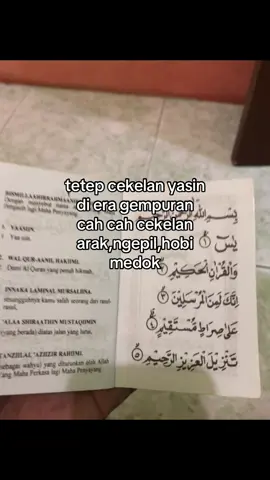 tetep cekelan yasin
di era gempuran
cah cah cekelan
arak,ngepil,hobi
medok
BISMILLAAHIRRAHMAANIR
Dengan menyebut nama
Pengasih lagi Maha Penyayang
YAASIIN
Yaa siin.
WAL-QUR-AANIL HAKIIMI.
Demi Al Quran yang penuh hikmah,
INNAKA LAMINAL MURSALIINA.
sesungguhnya kamu salah seorang dari rasul-
rasul,
'ALAA SHIRAATHIM MUSTAQIIMIN
(yang berada) diatas jalan yang lurus,
TANZIILAL 'AZIIZIR RAHIIMI.
(sebagai wahyu) yang diturunkan oleh Allah
Yang Maha Perkasa lagi Maha Penyayang
بِسْمِ اللهِ الرَّحْمٰنِ الرَّحِيْمِ
يٰسٓ ﴿١﴾
وَالْقُرْاٰنِ الْحَكِيْمِ ﴿٢﴾
اِنَّكَ لَمِنَ الْمُرْسَلِيْنَ ﴿٣﴾
عَلٰى صِرَاطٍ مُّسْتَقِيْمٍ ﴿٤﴾
تَنْزِيْلَ الْعَزِيْزِ الرَّحِيْمِ ﴿٥﴾